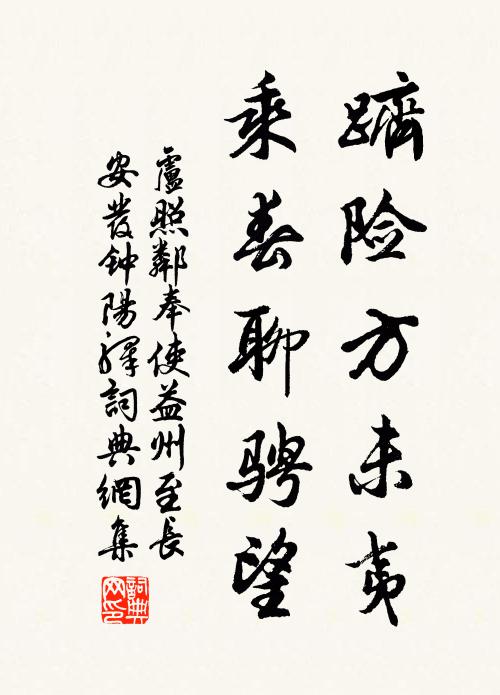 躋险方未夷
乘春聊骋望
盧照鄰奉使益州至長
安發钟陽驛詞典網集
詞典
网印